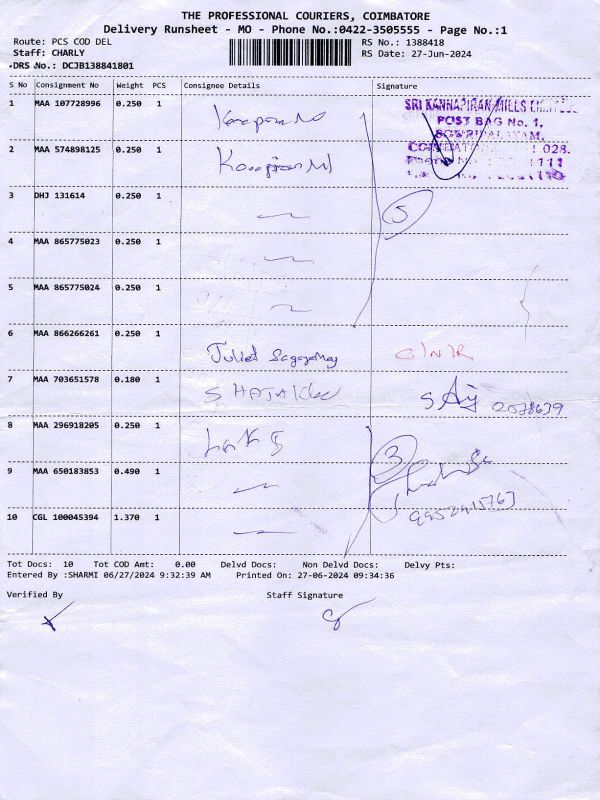 THE PROFESSIONAL COURIERS, COIMBATORE
Delivery Runsheet - MO - Phone No.:0422-3505555 - Page No.:1
Route: PCS COD DEL RS No.: 1388418
Staff: CHARLY RS Date: 27-Jun-2024
DRS No.: DCJB138841801
S No Consignment No Weight PCS Consignee Details Signature
1 MAA 107728996 0.250 1 SRI KANNAPIRAN MILLS
POST BAG No. 1,
SOWRIPALAYAM,
2 MAA 574898125 0.250 1 028.
3 DHJ 131614 0.250 1 5
4 MAA 865775023 0.250 1
5 MAA 865775024 0.250 1
6 MAA 866266261 0.250 1 Juliet
7 MAA 703651578 0.180 1
8 MAA 296918205 0.250 1
9 MAA 650183853 0.490 1 3
10 CGL 100045394 1.370 1
Tot Docs: 10 Tot COD Amt: 0.00 Delvd Docs: Non Delvd Docs: Delvy Pts:
Entered By :SHARMI 06/27/2024 9:32:39 AM Printed On: 27-06-2024 09:34:36
Verified By Staff Signature